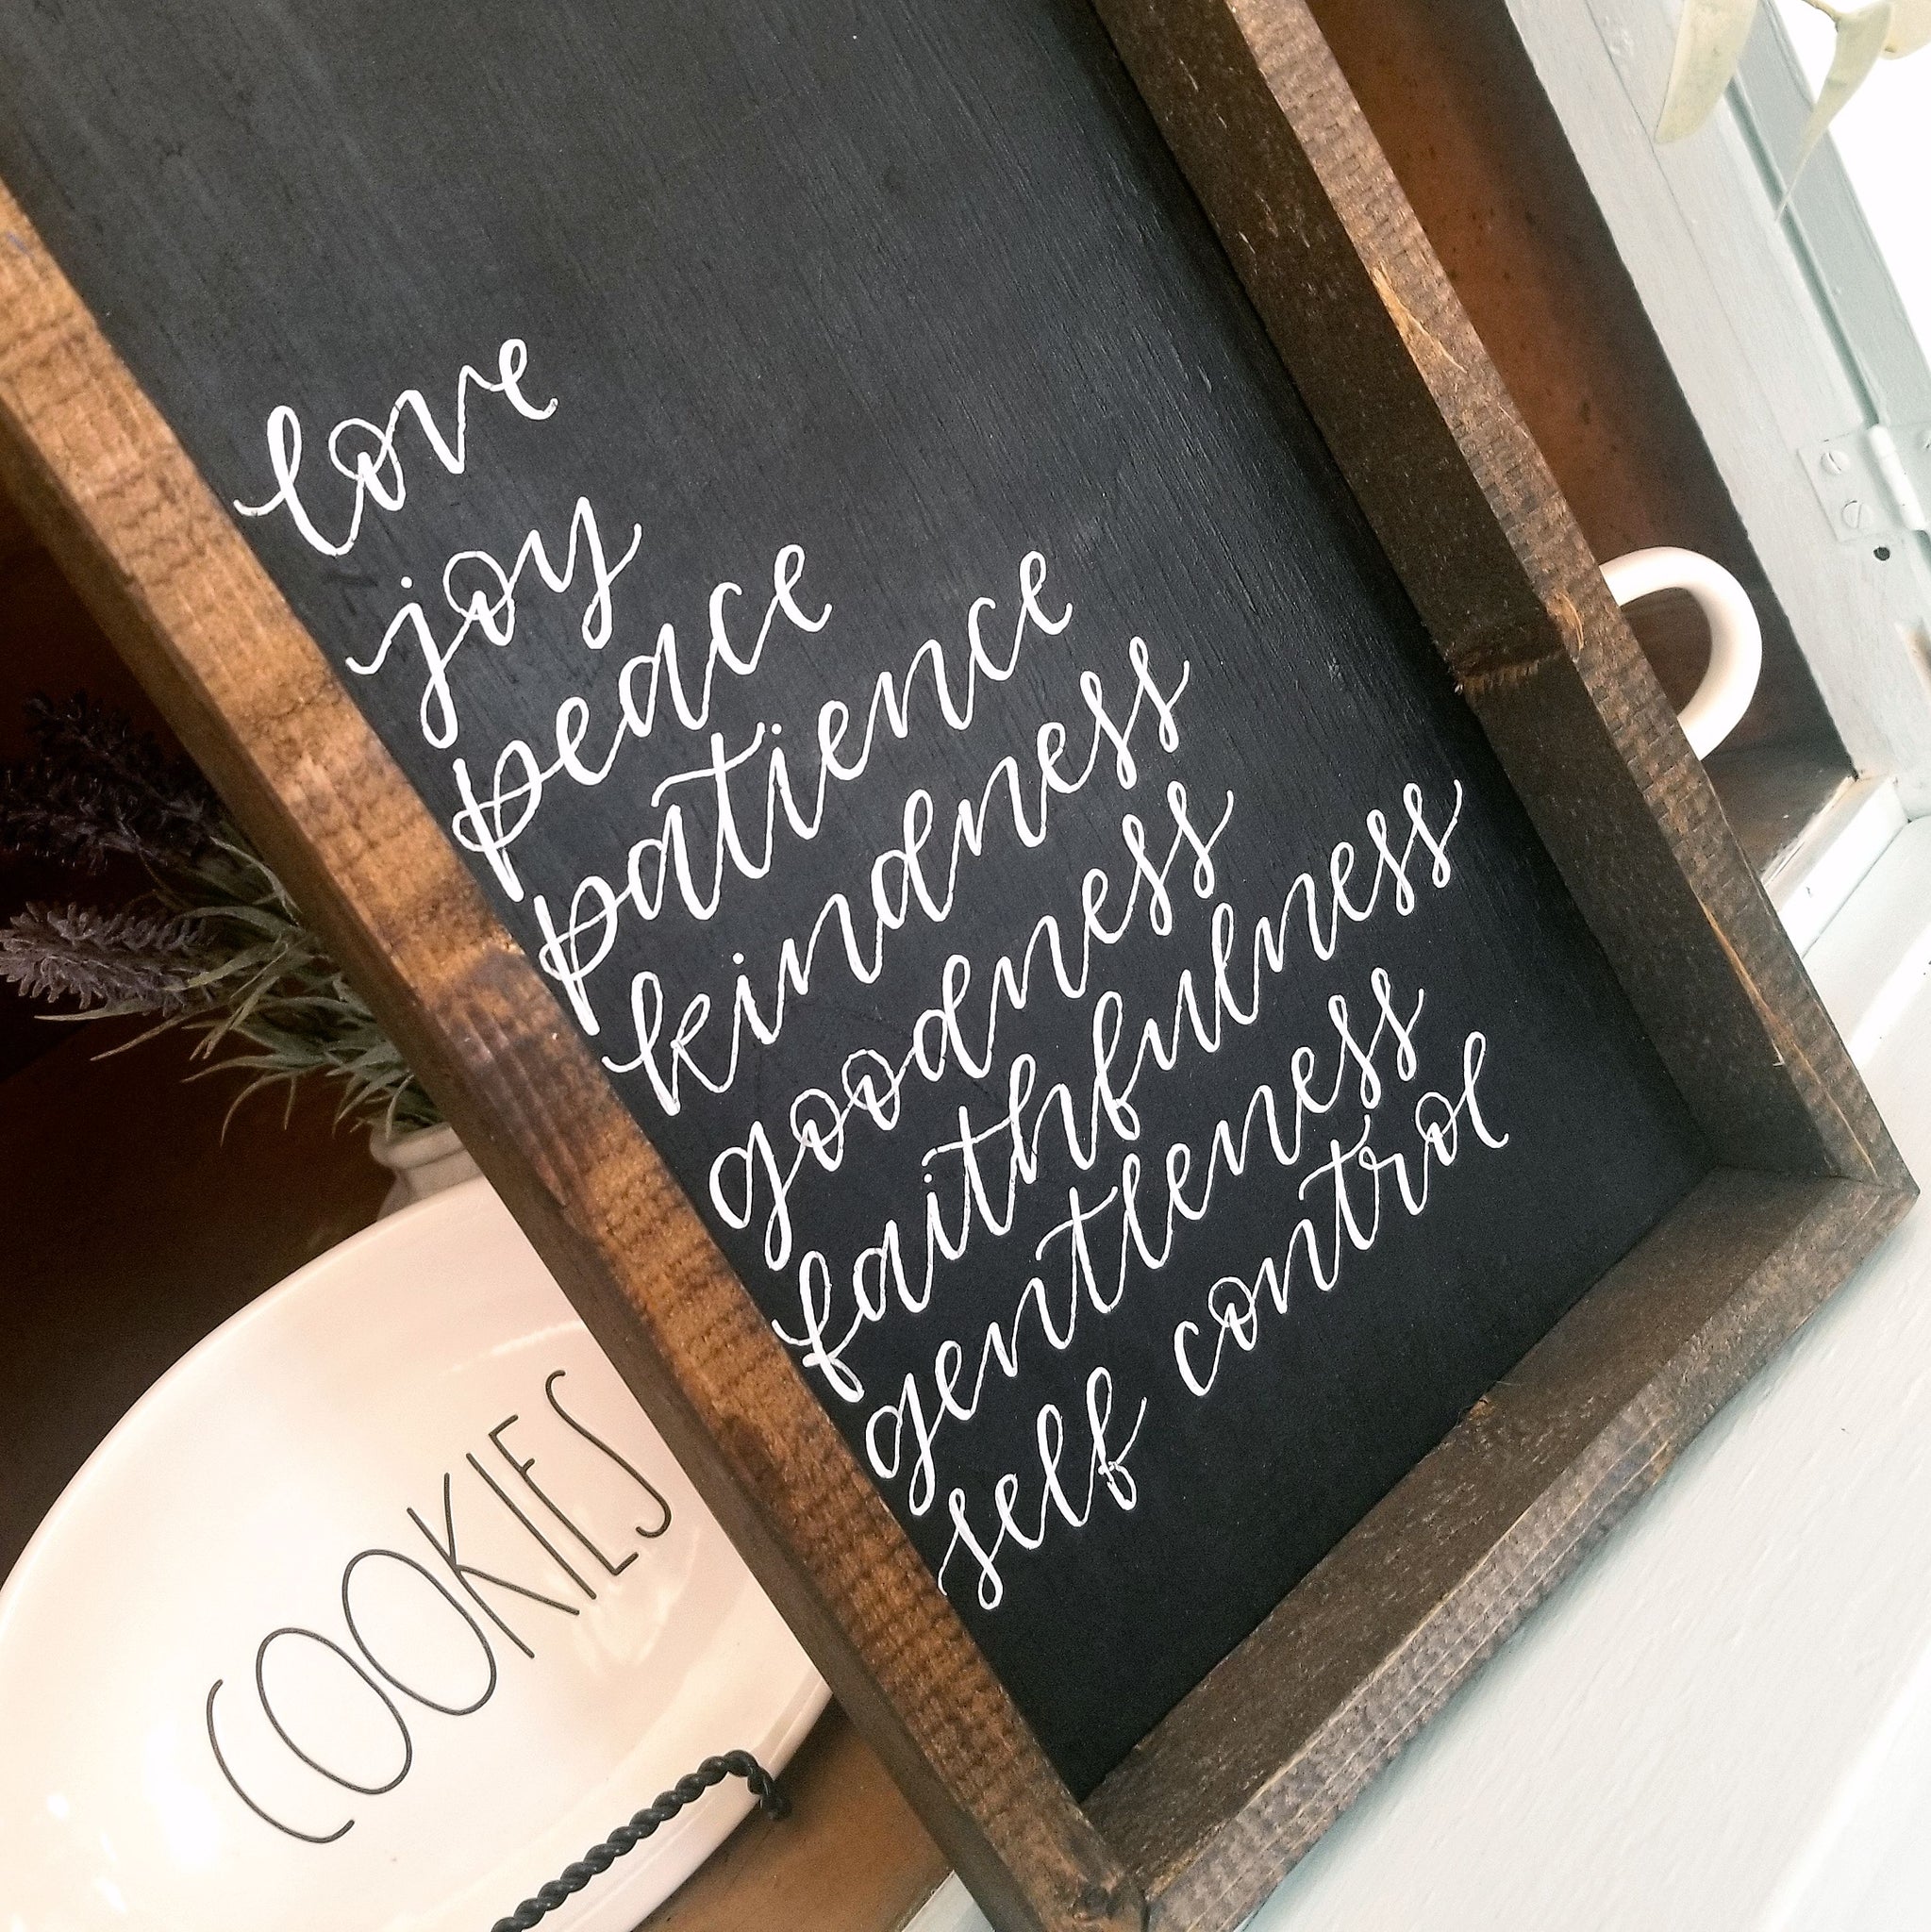 love
joy
peace
patience
kindness
goodness
faithfulness
gentleness
self control
COOKIES